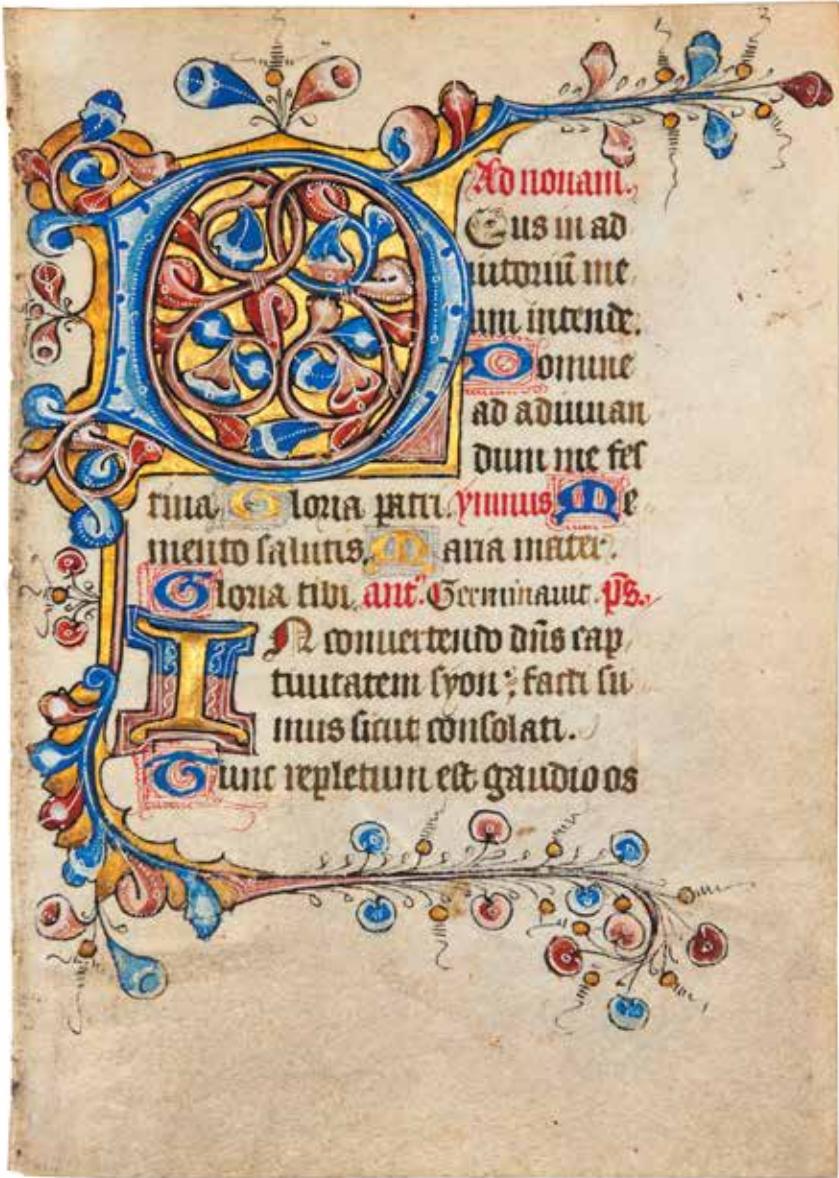 Ad nonam.
DEus in ad
iutoriū me
um intende.
Domine
ad adiuuan
dum me fes
tina Gloria patri. ymnus Me
mento salutis. Maria mater.
Gloria tibi. ant͛. Germinauit. p̄s.
IN conuertendo dn̄s cap
tiuitatem syon: facti su
mus sicut consolati.
Tunc repletum est gaudio os